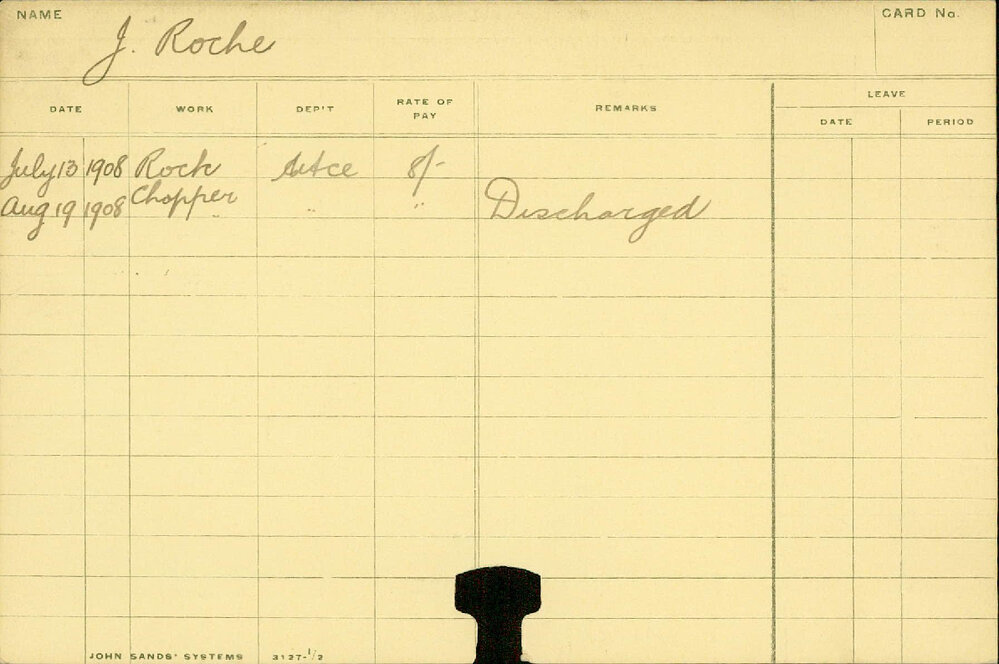 NAME
J. Roche
CARD No.
DATE WORK DEP'T RATE OF PAY REMARKS LEAVE
DATE PERIOD
July 13 1908 Rock 8/-
Aug 19 1908 Chopper " " Discharged
JOHN SANDS' SYSTEMS 3127-1/2